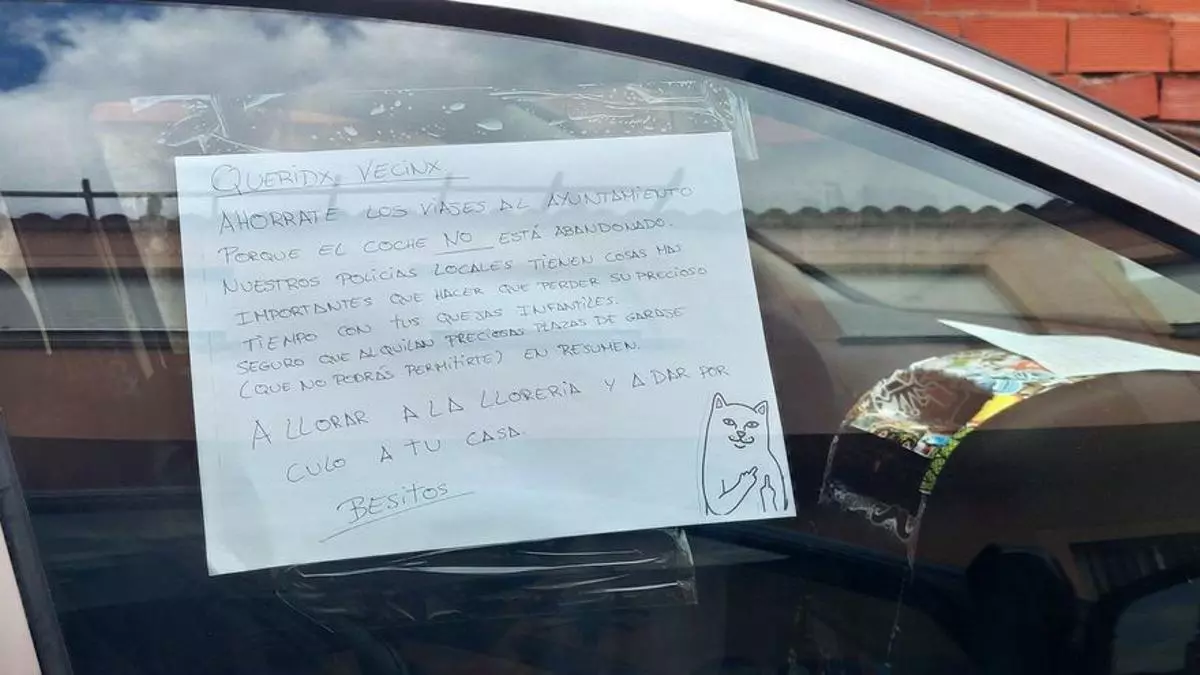 QUERIDX VECINX
AHORRATE LOS VIAJES AL AYUNTAMIENTO
PORQUE EL COCHE NO ESTÁ ABANDONADO.
NUESTROS POLICIAS LOCALES TIENEN COSAS MAS
IMPORTANTES QUE HACER QUE PERDER SU PRECIOSO
TIEMPO CON TUS QUEJAS INFANTILES.
SEGURO QUE ALQUILAN PRECIOSAS PLAZAS DE GARAJE
(QUE NO PODRÁS PERMITIRTE) EN RESUMEN.
A LLORAR A LA LLORERIA Y A DAR POR
CULO A TU CASA.
BESITOS